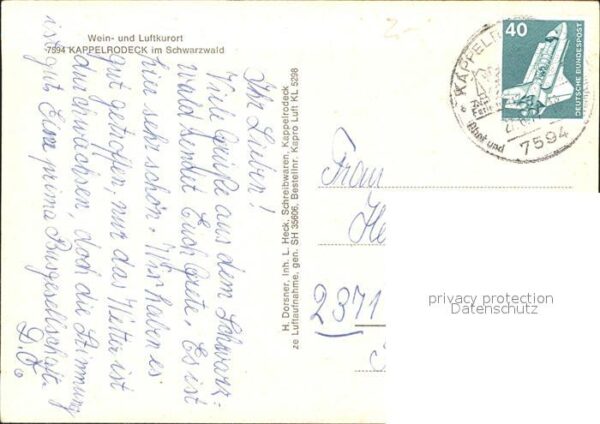 Wein- und Luftkurort
7594 KAPPELRODECK im Schwarzwald
Ihr Lieben!
Viele Grüße aus dem Schwarz-
wald sendet Euch Grete. Es ist
hier sehr schön. Wir haben es
gut getroffen, nur das Wetter ist
durchwachsen, doch die Stimmung
ist gut. Eine prima Busgesellschaft.
D. O.
H. Dorsner, Inh. L. Heck, Schreibwaren, Kappelrodeck
ze Luftaufnahme, gen. SH 35606, Bestellnr. Kapro Luft KL 5298
40
DEUTSCHE BUNDESPOST
KAPPELRO
7594
Frau
He
2371
privacy protection
Datenschutz